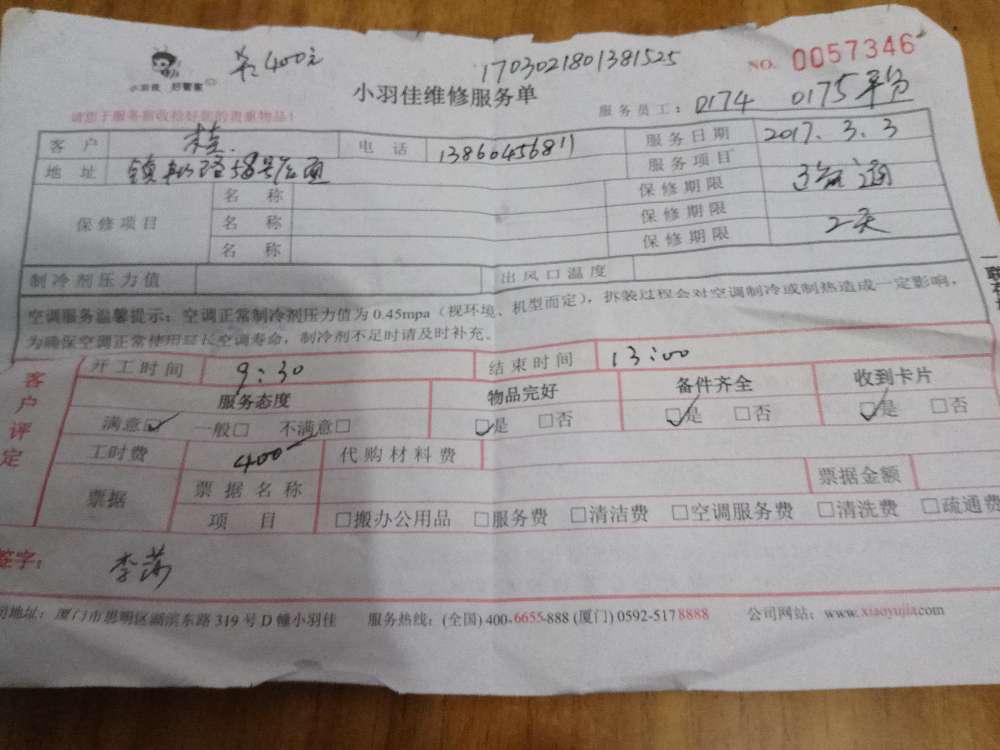 小羽佳 好管家
共:400元
1703021801381525
NO. 0057346
小羽佳维修服务单
服务员工: 0174 0175 平分
请您于服务前收拾好您的贵重物品!
客户 桂. 电话 13860456811 服务日期 2017.3.3
地址 58号 服务项目 通
保修项目 名称 保修期限
名称 保修期限 2天
名称 保修期限
制冷剂压力值 出风口温度
空调服务温馨提示:空调正常制冷剂压力值为0.45mpa(视环境、机型而定),拆装过程会对空调制冷或制热造成一定影响,
为确保空调正常使用延长空调寿命,制冷剂不足时请及时补充。
客户评定
开工时间 9:30 结束时间 13:00
服务态度 物品完好 备件齐全 收到卡片
满意☑ 一般□ 不满意□ ☑是 □否 ☑是 □否 ☑是 □否
工时费 400 代购材料费
票据 票据名称 票据金额
项目 □搬办公用品 □服务费 □清洁费 □空调服务费 □清洗费 □疏通费
签字: 李
司地址:厦门市思明区湖滨东路319号D幢小羽佳 服务热线:(全国)400-6655-888 (厦门)0592-5178888 公司网站:www.xiaoyujia.com